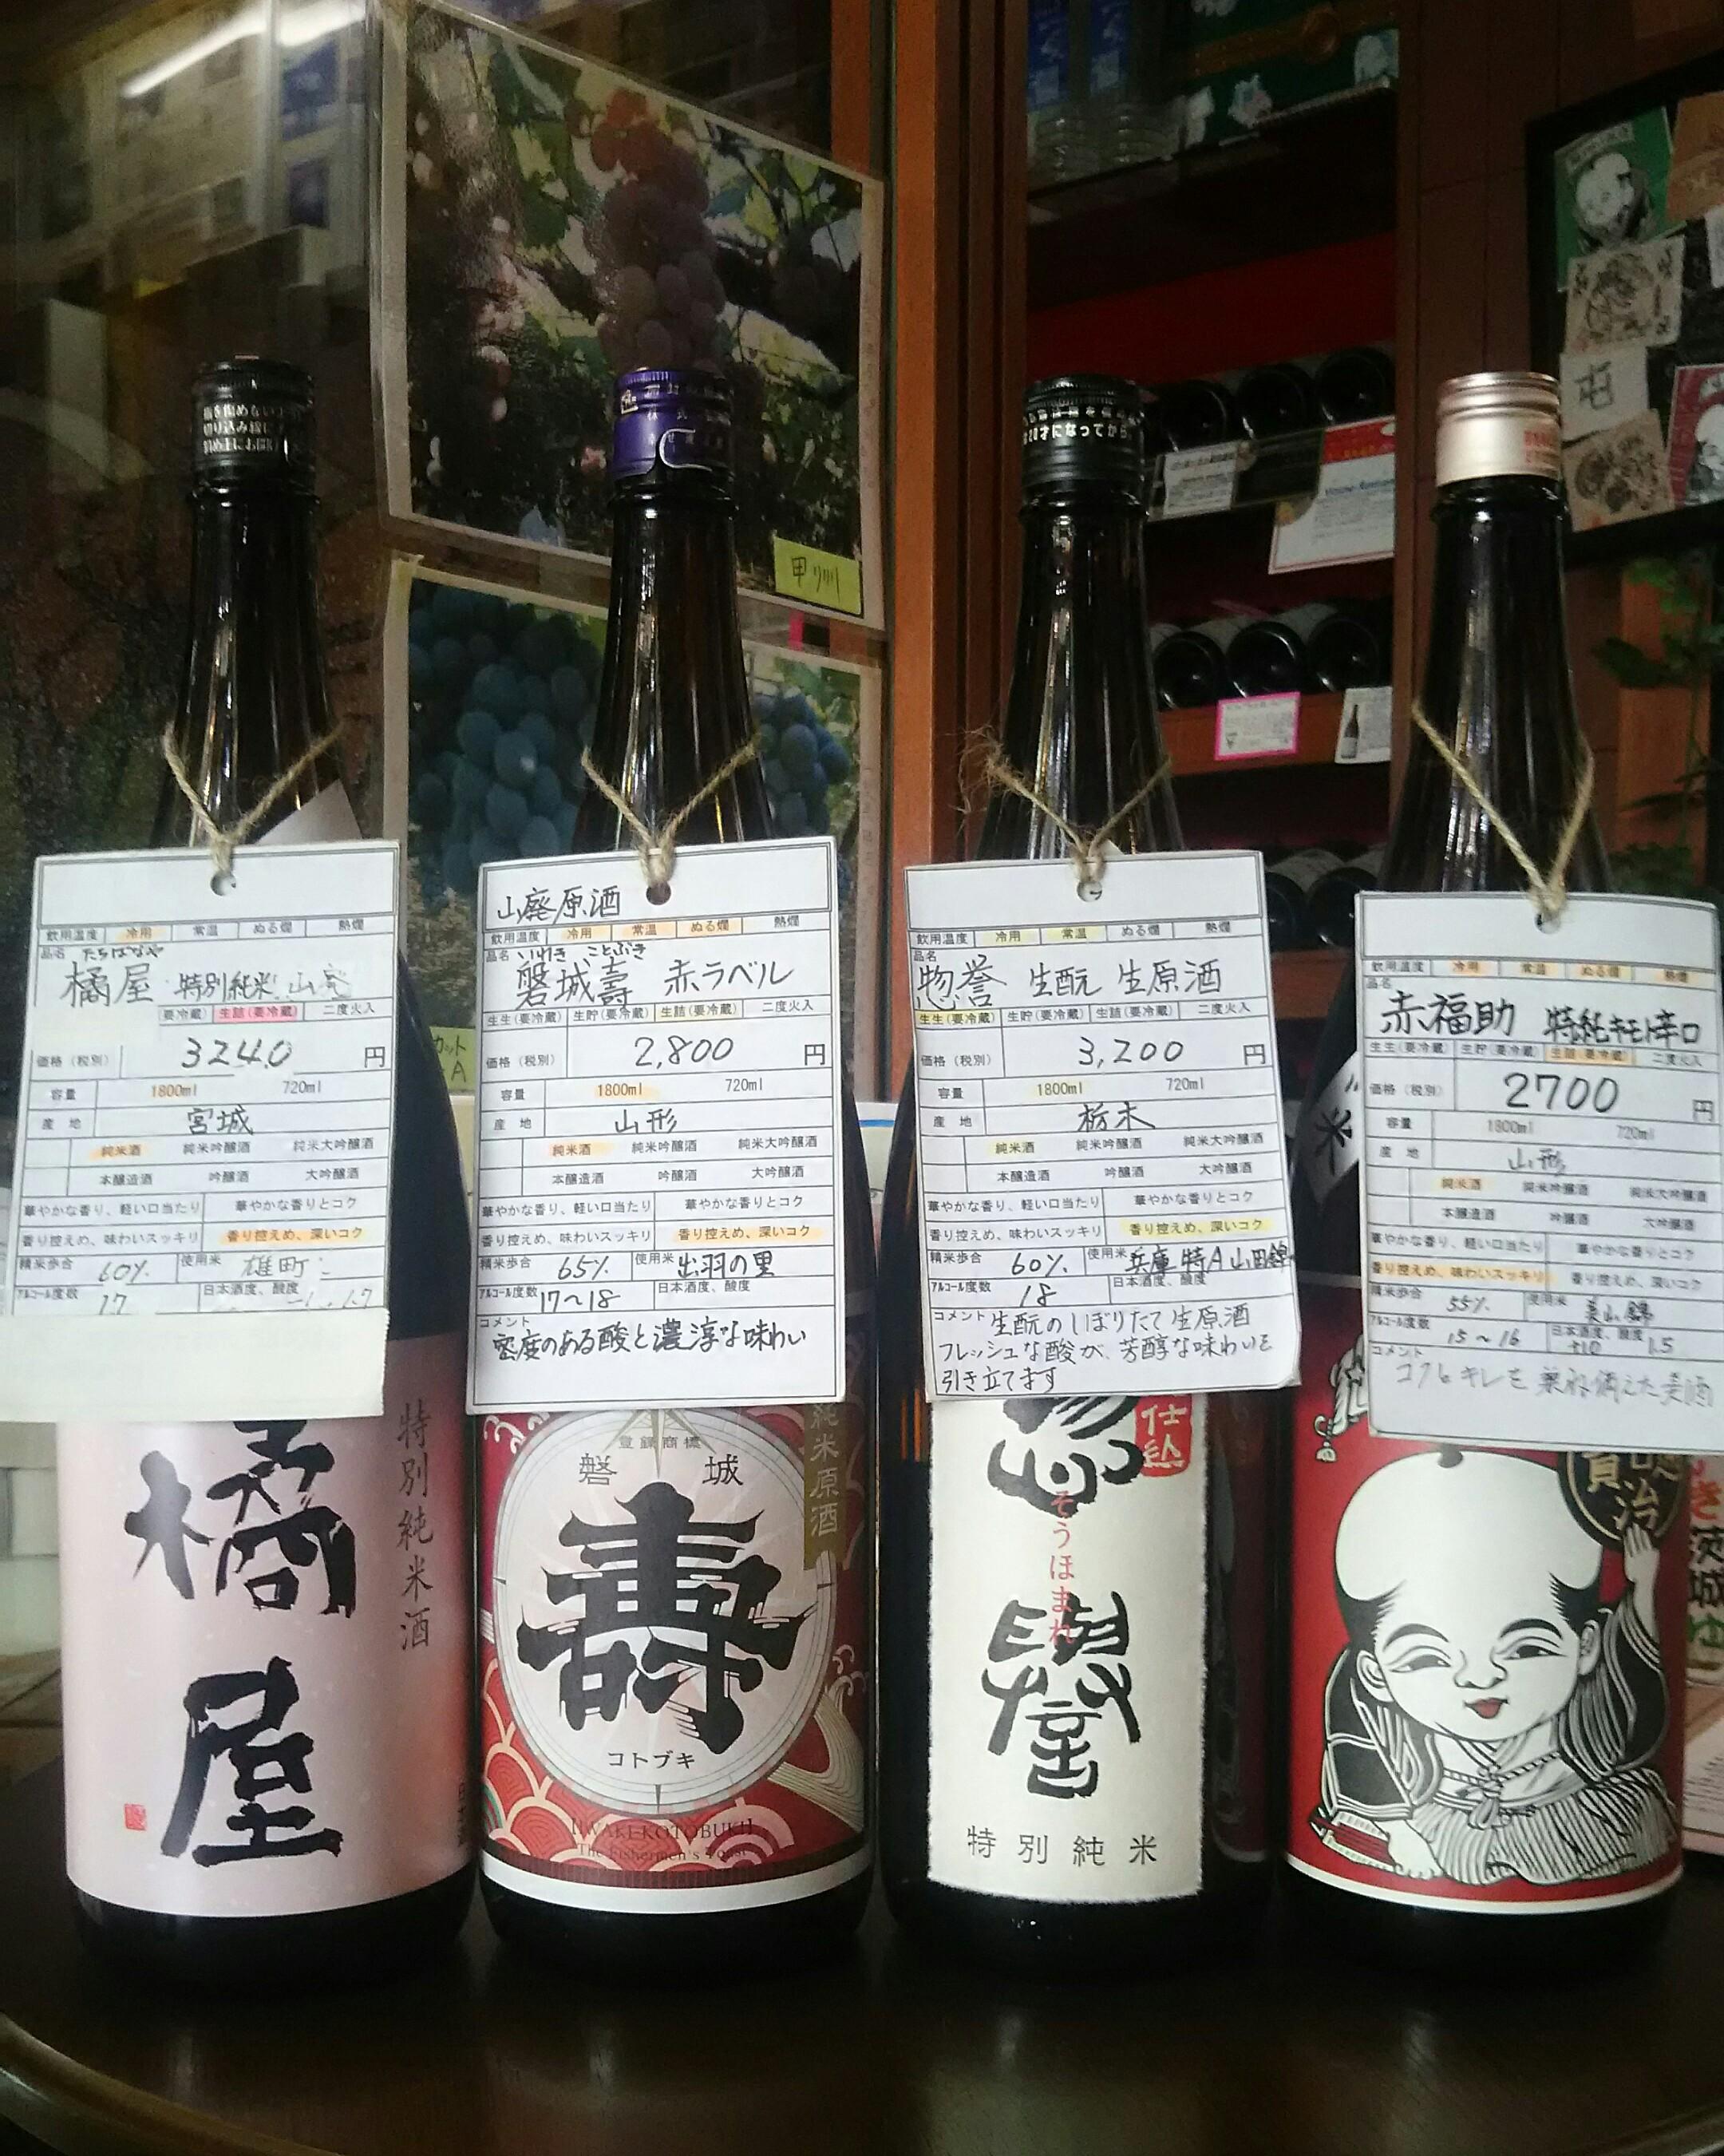 甲州
飲用温度 冷用 常温 ぬる燗 熱燗
品名 たちばなや
橘屋 特別純米 山廃
要冷蔵) 生詰(要冷蔵) 二度火入
価格(税別) 3240 円
容量 1800ml 720ml
産地 宮城
純米酒 純米吟醸酒 純米大吟醸酒
本醸造酒 吟醸酒 大吟醸酒
華やかな香り、軽い口当たり 華やかな香りとコク
香り控えめ、味わいスッキリ 香り控えめ、深いコク
精米歩合 60% 使用米 雄町
アルコール度数 17 日本酒度、酸度
橘屋
特別純米酒
山廃原酒
飲用温度 冷用 常温 ぬる燗 熱燗
品名 いわき ことぶき
磐城壽 赤ラベル
生生(要冷蔵) 生貯(要冷蔵) 生詰(要冷蔵) 二度火入
価格(税別) 2,800 円
容量 1800ml 720ml
産地 山形
純米酒 純米吟醸酒 純米大吟醸酒
本醸造酒 吟醸酒 大吟醸酒
華やかな香り、軽い口当たり 華やかな香りとコク
香り控えめ、味わいスッキリ 香り控えめ、深いコク
精米歩合 65% 使用米 出羽の里
アルコール度数 17〜18 日本酒度、酸度
コメント
密度のある酸と濃淳な味わい
純米原酒
登録商標
磐城
壽
コトブキ
IWAKI-KOTOBUKI
The Fishermen's Toast
飲用温度 冷用 常温 ぬる燗 熱燗
品名
惣誉 生酛 生原酒
生生(要冷蔵) 生貯(要冷蔵) 生詰(要冷蔵) 二度火入
価格(税別) 3,200 円
容量 1800ml 720ml
産地 栃木
純米酒 純米吟醸酒 純米大吟醸酒
本醸造酒 吟醸酒 大吟醸酒
華やかな香り、軽い口当たり 華やかな香りとコク
香り控えめ、味わいスッキリ 香り控えめ、深いコク
精米歩合 60% 使用米 兵庫特A山田錦
アルコール度数 18 日本酒度、酸度
コメント 生酛のしぼりたて生原酒
フレッシュな酸が、芳醇な味わいを
引き立てます
仕込
惣譽
そうほまれ
特別純米
飲用温度 冷用 常温 ぬる燗 熱燗
品名
赤福助 特純キモト辛口
生生(要冷蔵) 生貯(要冷蔵) 生詰(要冷蔵) 二度火入
価格(税別) 2700 円
容量 1800ml 720ml
産地 山形
純米酒 純米吟醸酒 純米大吟醸酒
本醸造酒 吟醸酒 大吟醸酒
華やかな香り、軽い口当たり 華やかな香りとコク
香り控えめ、味わいスッキリ 香り控えめ、深いコク
精米歩合 55% 使用米 美山錦
アルコール度数 15〜16 日本酒度、酸度 +10 1.5
コメント
コクとキレを兼ね備えた美酒